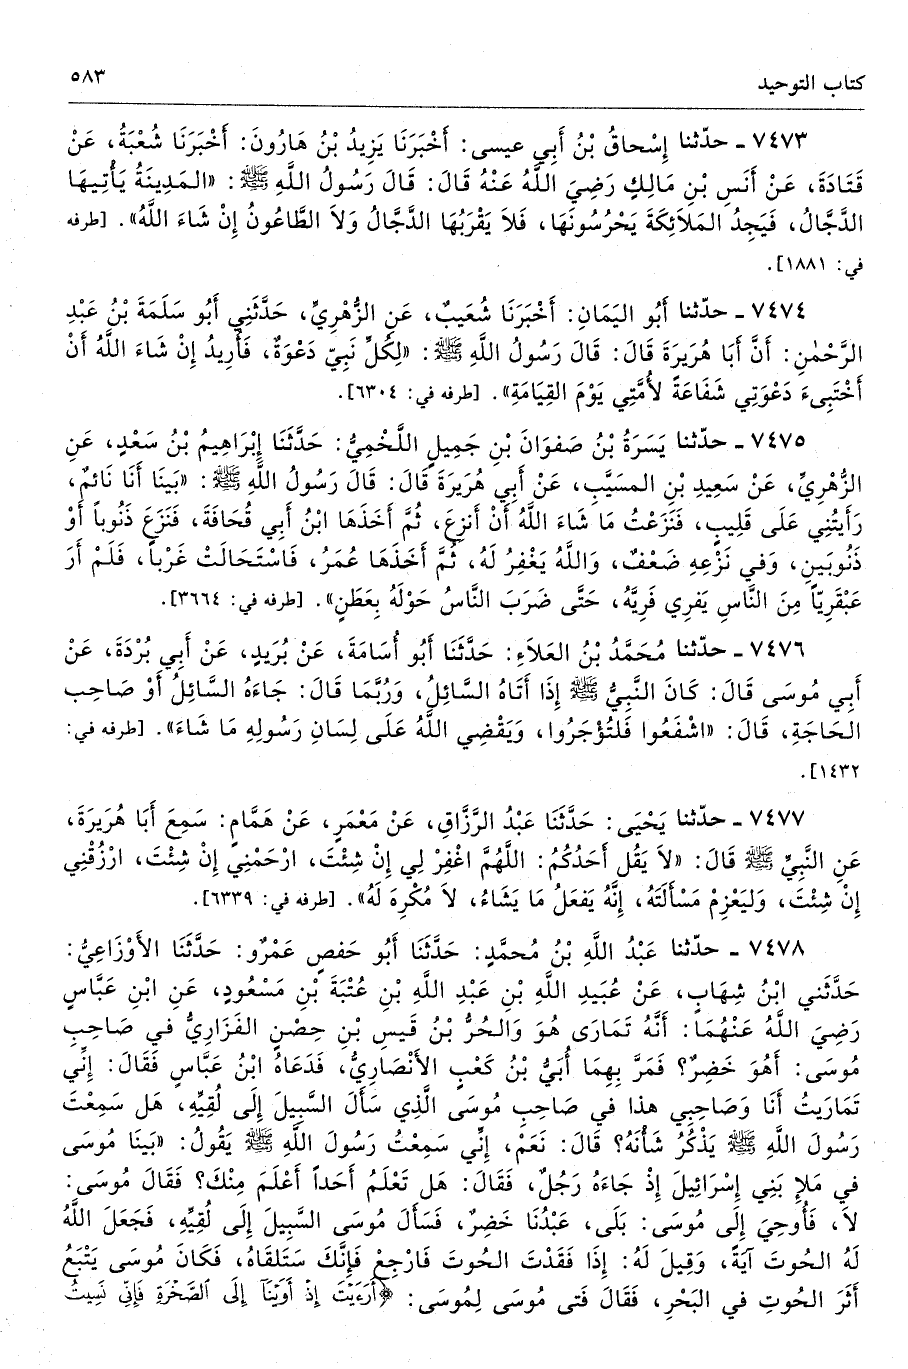 كتاب التوحيد ٥٨٣
٧٤٧٣ ـ حدّثنا إِسْحاقُ بْنُ أَبِي عيسى: أَخْبَرَنَا يَزِيدُ بْنُ هَارُونَ: أَخْبَرَنَا شُعْبَةُ، عَنْ
قَتَادَةَ، عَنْ أَنَسِ بْنِ مَالِكٍ رَضِيَ اللَّهُ عَنْهُ قَالَ: قَالَ رَسُولُ اللَّهِ ﷺ: «المَدِينَةُ يَأْتِيهَا
الدَّجَّالُ، فَيَجِدُ المَلاَئِكَةَ يَحْرُسُونَهَا، فَلاَ يَقْرَبُهَا الدَّجَّالُ وَلاَ الطَّاعُونُ إِنْ شَاءَ اللَّهُ». [طرفه
في: ١٨٨١].
٧٤٧٤ ـ حدّثنا أَبُو اليَمَانِ: أَخْبَرَنَا شُعَيبٌ، عَنِ الزُّهْرِيِّ، حَدَّثَنِي أَبُو سَلَمَةَ بْنُ عَبْدِ
الرَّحْمٰنِ: أَنَّ أَبَا هُرَيرَةَ قَالَ: قَالَ رَسُولُ اللَّهِ ﷺ: «لِكُلِّ نَبِيٍّ دَعْوَةٌ، فَأُرِيدُ إِنْ شَاءَ اللَّهُ أَنْ
أَخْتَبِىءَ دَعْوَتِي شَفَاعَةً لأُمَّتِي يَوْمَ القِيَامَةِ». [طرفه في: ٦٣٠٤].
٧٤٧٥ ـ حدّثنا يَسَرَةُ بْنُ صَفوَانَ بْنِ جَمِيلٍ اللَّخْمِيُّ: حَدَّثَنَا إِبْرَاهِيمُ بْنُ سَعْدٍ، عَنِ
الزُّهْرِيِّ، عَنْ سَعِيدِ بْنِ المسَيَّبِ، عَنْ أَبِي هُرَيرَةَ قَالَ: قَالَ رَسُولُ اللَّهِ ﷺ: «بَينَا أَنَا نَائمٌ،
رَأَيتُنِي عَلَى قَلِيبٍ، فَنَزَعْتُ مَا شَاءَ اللَّهُ أَنْ أَنزِعَ، ثُمَّ أَخَذَهَا ابْنُ أَبِي قُحَافَةَ، فَنَزَعَ ذَنُوباً أَوْ
ذَنُوبَينِ، وَفي نَزْعِهِ ضَعْفٌ، وَاللَّهُ يَغْفِرُ لَهُ، ثُمَّ أَخَذَهَا عُمَرُ، فَاسْتَحَالَتْ غَرْباً، فَلَمْ أَرَ
عَبْقَرِيّاً مِنَ النَّاسِ يَفرِي فَرِيَّهُ، حَتَّى ضَرَبَ النَّاسُ حَوْلَهُ بِعَطَنٍ». [طرفه في: ٣٦٦٤].
٧٤٧٦ ـ حدّثنا مُحَمَّدُ بْنُ العَلاَءِ: حَدَّثَنَا أَبُو أُسَامَةَ، عَنْ بُرَيدٍ، عَنْ أَبِي بُرْدَةَ، عَنْ
أَبِي مُوسَى قَالَ: كَانَ النَّبِيُّ ﷺ إِذَا أَتَاهُ السَّائِلُ، وَرُبَّمَا قَالَ: جَاءَهُ السَّائِلُ أَوْ صَاحِب
الحَاجَةِ، قَالَ: «اشْفَعُوا فَلتُؤْجَرُوا، وَيَقْضِي اللَّهُ عَلَى لِسَانِ رَسُولِهِ مَا شَاءَ». [طرفه في:
١٤٣٢].
٧٤٧٧ ـ حدّثنا يَحْيَى: حَدَّثَنَا عَبْدُ الرَّزَّاقِ، عَنْ مَعْمَرٍ، عَنْ هَمَّامٍ: سَمِعَ أَبَا هُرَيرَةَ،
عَنِ النَّبِيِّ ﷺ قَالَ: «لاَ يَقُل أَحَدُكُمُ: اللَّهُمَّ اغْفِرْ لِي إِنْ شِئْتَ، ارْحَمْنِي إِنْ شِئْتَ، ارْزُقْنِي
إِنْ شِئْتَ، وَليَعْزِمْ مَسْأَلَتَهُ، إِنَّهُ يَفعَلُ مَا يَشَاءُ، لاَ مُكْرِهَ لَهُ». [طرفه في: ٦٣٣٩].
٧٤٧٨ ـ حدّثنا عَبْدُ اللَّهِ بْنُ مُحمَّدٍ: حَدَّثَنَا أَبُو حَفصٍ عَمْرٌو: حَدَّثَنَا الأَوْزَاعِيُّ:
حَدَّثَني ابْنُ شِهَابٍ، عَنْ عُبَيدِ اللَّهِ بْنِ عَبْدِ اللَّهِ بْنِ عُتْبَةَ بْنِ مَسْعُودٍ، عَنِ ابْنِ عَبَّاسٍ
رَضِيَ اللَّهُ عَنْهُمَا: أَنَّهُ تَمَارَى هُوَ وَالحُرُّ بْنُ قَيسِ بْنِ حِصْنٍ الفَزَارِيُّ في صَاحِبِ
مُوسَى: أَهُوَ خَضِرٌ؟ فَمَرَّ بِهِمَا أُبَيُّ بْنُ كَعْبٍ الأَنْصَارِيُّ، فَدَعَاهُ ابْنُ عَبَّاسٍ فَقَالَ: إِنِّي
تَمَارَيتُ أَنَا وَصَاحِبِي هذا في صَاحِبِ مُوسَى الَّذِي سَأَلَ السَّبِيلَ إِلَى لُقِيِّهِ، هَل سَمِعْتَ
رَسُولَ اللَّهِ ﷺ يَذْكُرُ شَأْنَهُ؟ قَالَ: نَعَمْ، إِنِّي سَمِعْتُ رَسُولَ اللَّهِ ﷺ يَقُولُ: «بَينَا مُوسَى
في مَلإِ بَنِي إِسْرَائِيلَ إِذْ جَاءَهُ رَجُلٌ، فَقَالَ: هَل تَعْلَمُ أَحَداً أَعْلَمَ مِنْكَ؟ فَقَالَ مُوسَى:
لاَ، فَأُوحِيَ إِلَى مُوسَى: بَلَى، عَبْدُنَا خَضِرٌ، فَسَأَلَ مُوسَى السَّبِيلَ إِلَى لُقِيِّهِ، فَجَعَلَ اللَّهُ
لَهُ الحُوتَ آيَةً، وَقِيلَ لَهُ: إِذَا فَقَدْتَ الحُوتَ فَارْجِعْ فَإِنَّكَ سَتَلقَاهُ، فَكَانَ مُوسَى يَتْبَعُ
أَثَرَ الحُوتِ في البَحْرِ، فَقَالَ فَتى مُوسَى لِمُوسَى: ﴿أَرَءَيْتَ إِذْ أَوَيْنَآ إِلَى ٱلصَّخْرَةِ فَإِنِّى نَسِيتُ